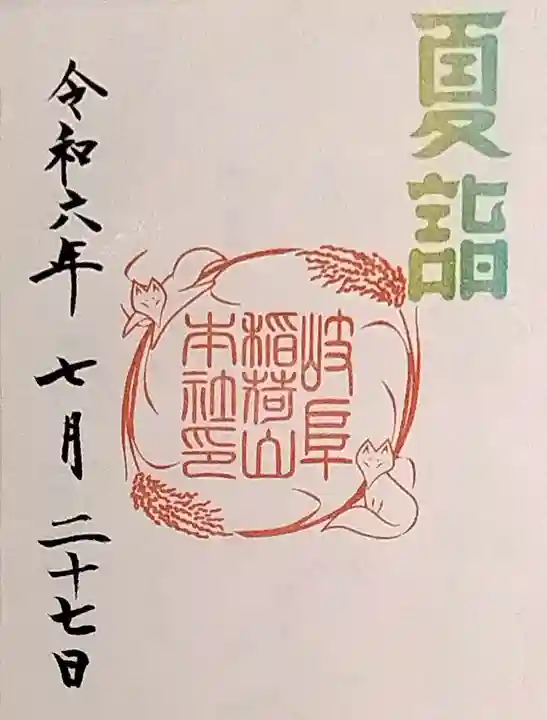 夏詣
岐阜
稲荷山
本社印
令和六年 七月 二十七日